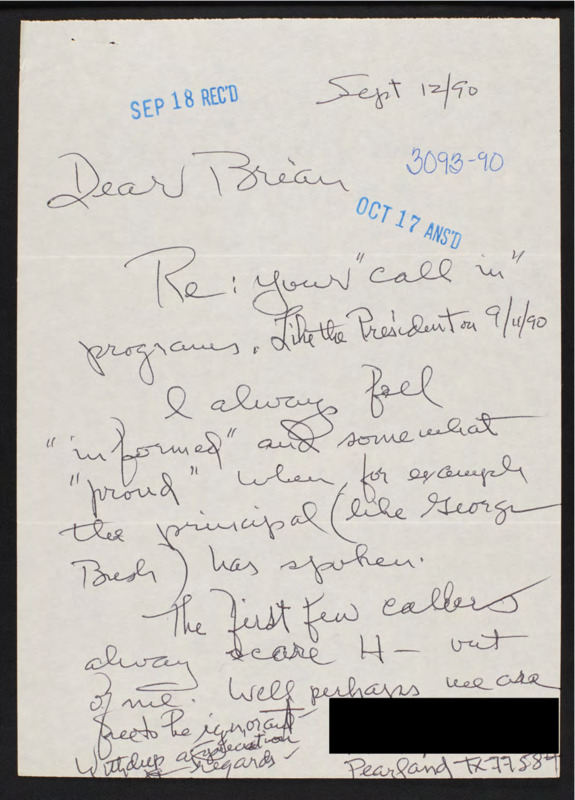 Sept 12/90
SEP 18 REC'D
Dear Brian
3093-90
OCT 17 ANS'D
Re: your "call in"
programs. Like the President on 9/11/90
I always feel
"informed" and somewhat
"proud" when for example
the principal (like George
Bush) has spoken.
The first few callers
always scare H- out
of me. Well perhaps we are
free to be ignorant
With deep appreciation
regards
Pearland TX 77584